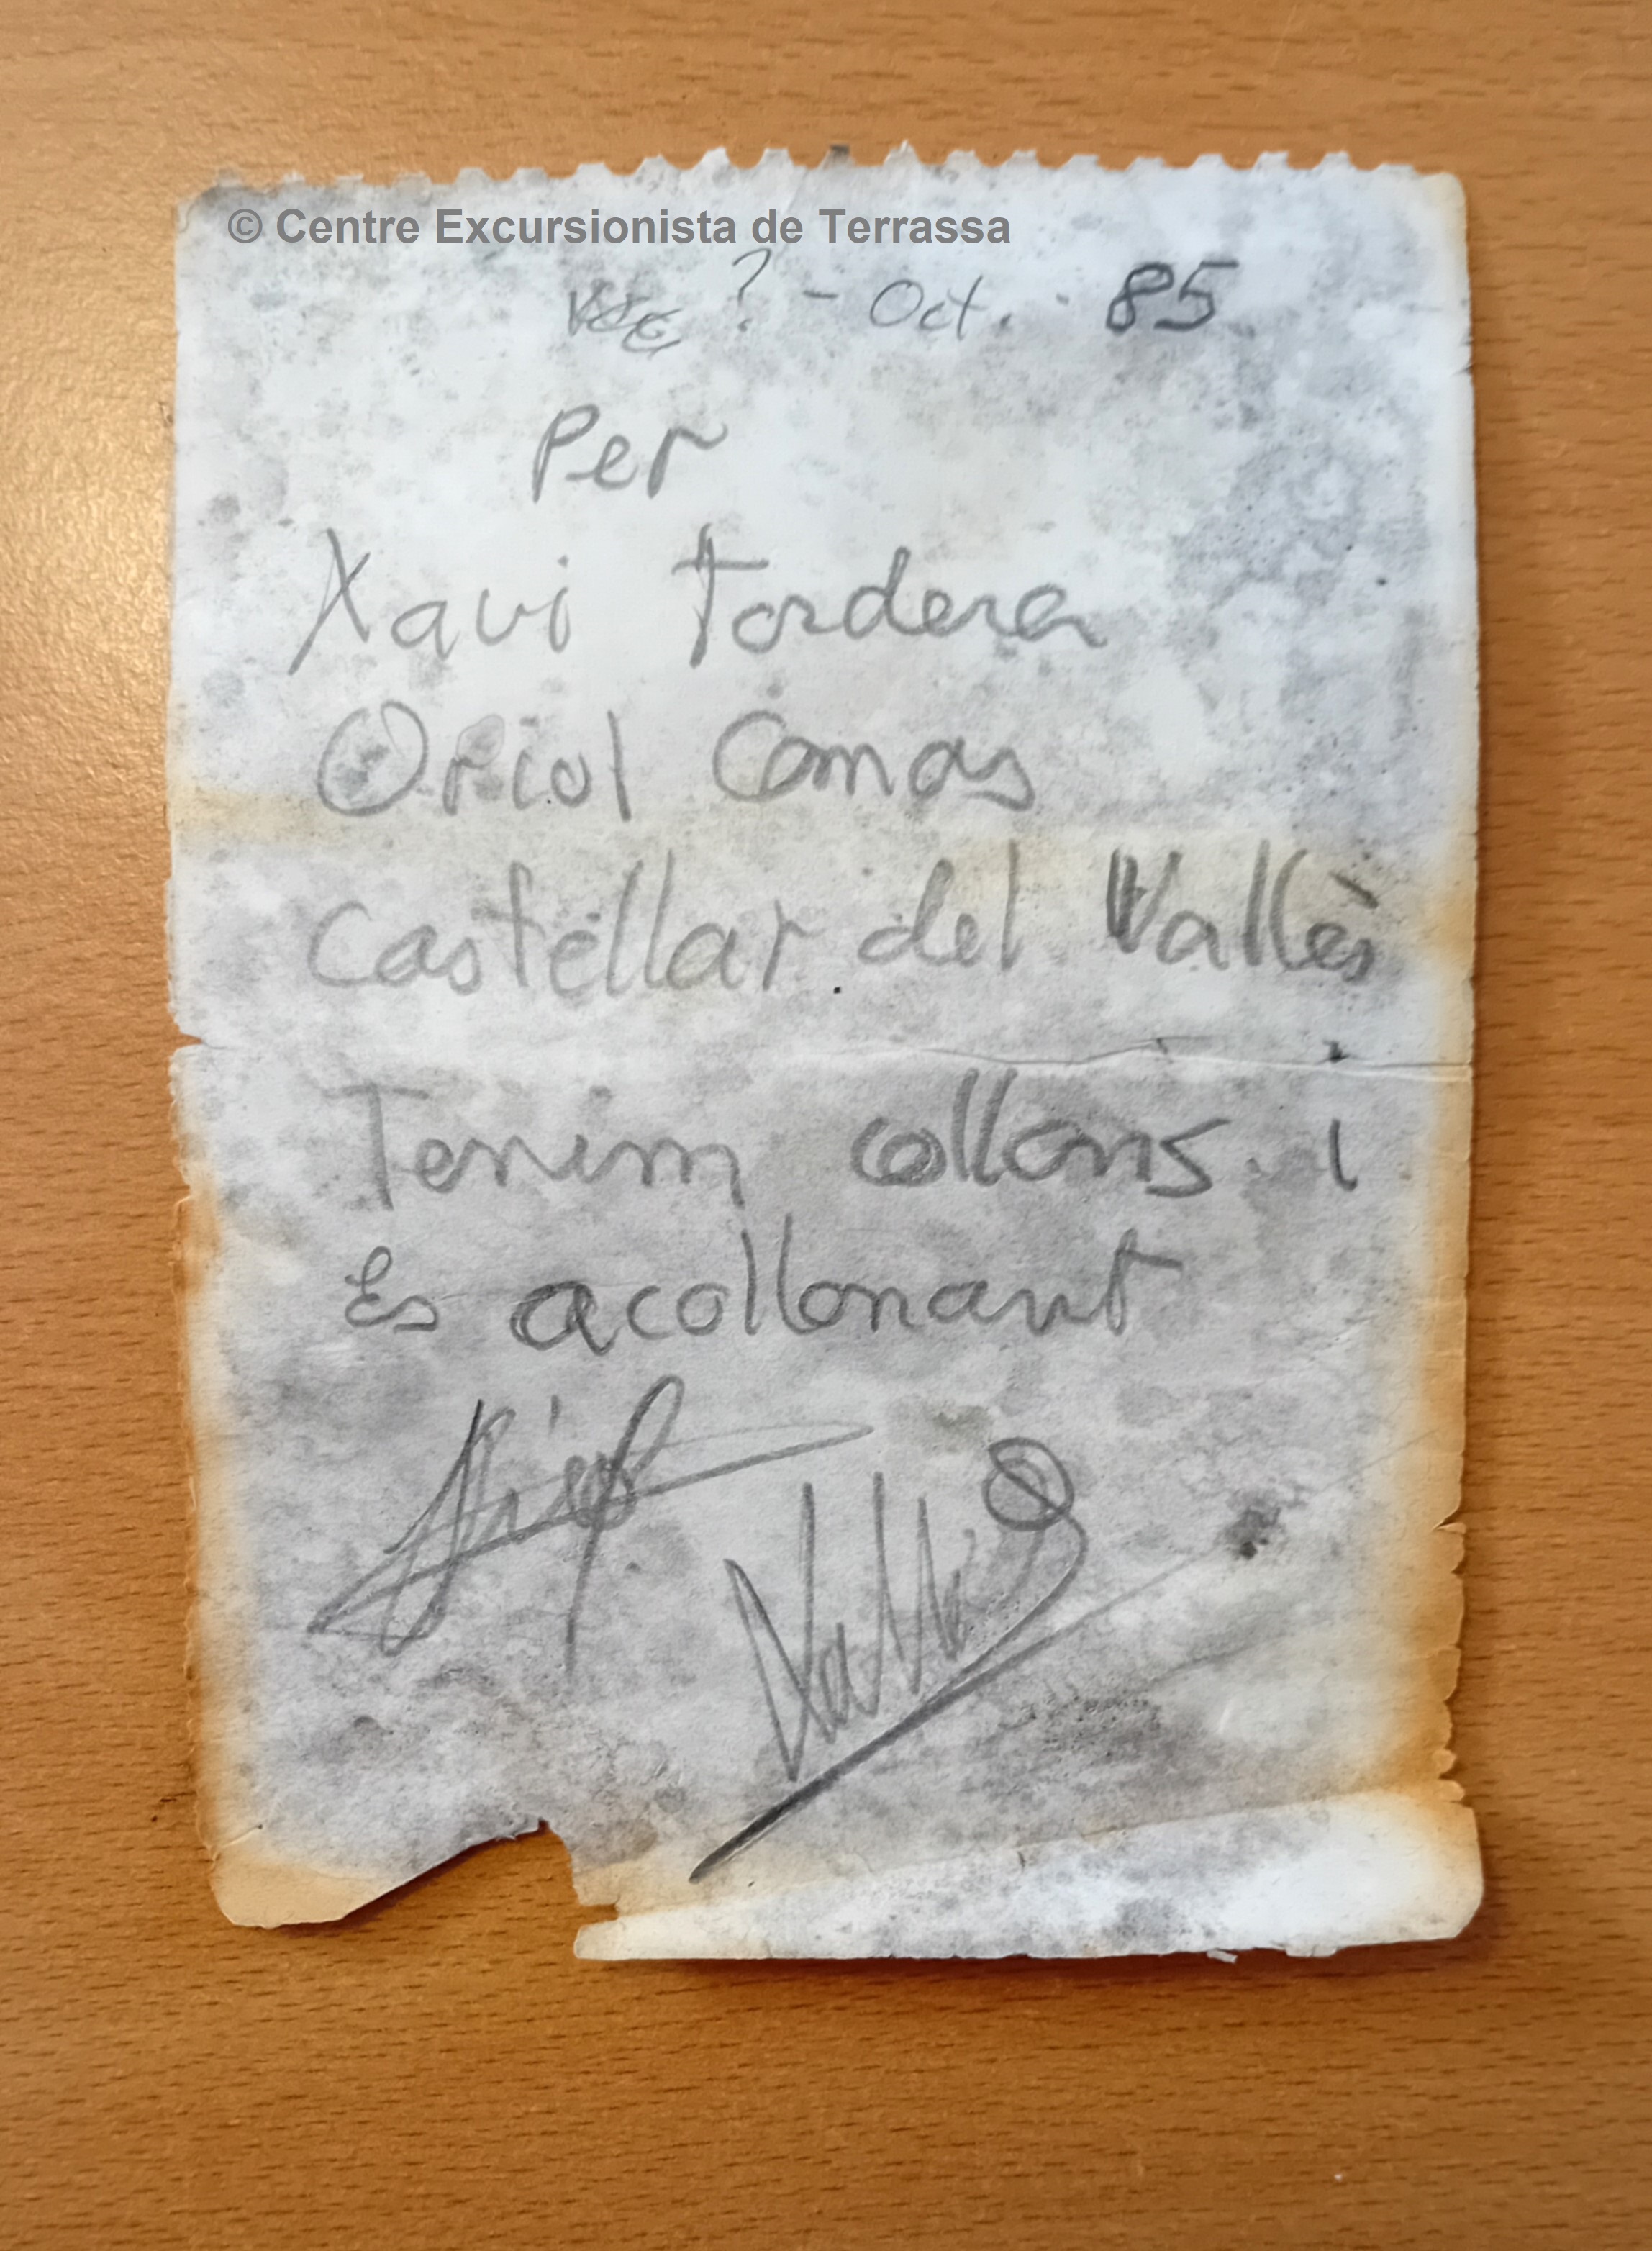 © Centre Excursionista de Terrassa
? - Oct. 85
Per
Xavi Tordera
Oriol Comas
Castellar del Vallès
Tenim collons i
És acollonant